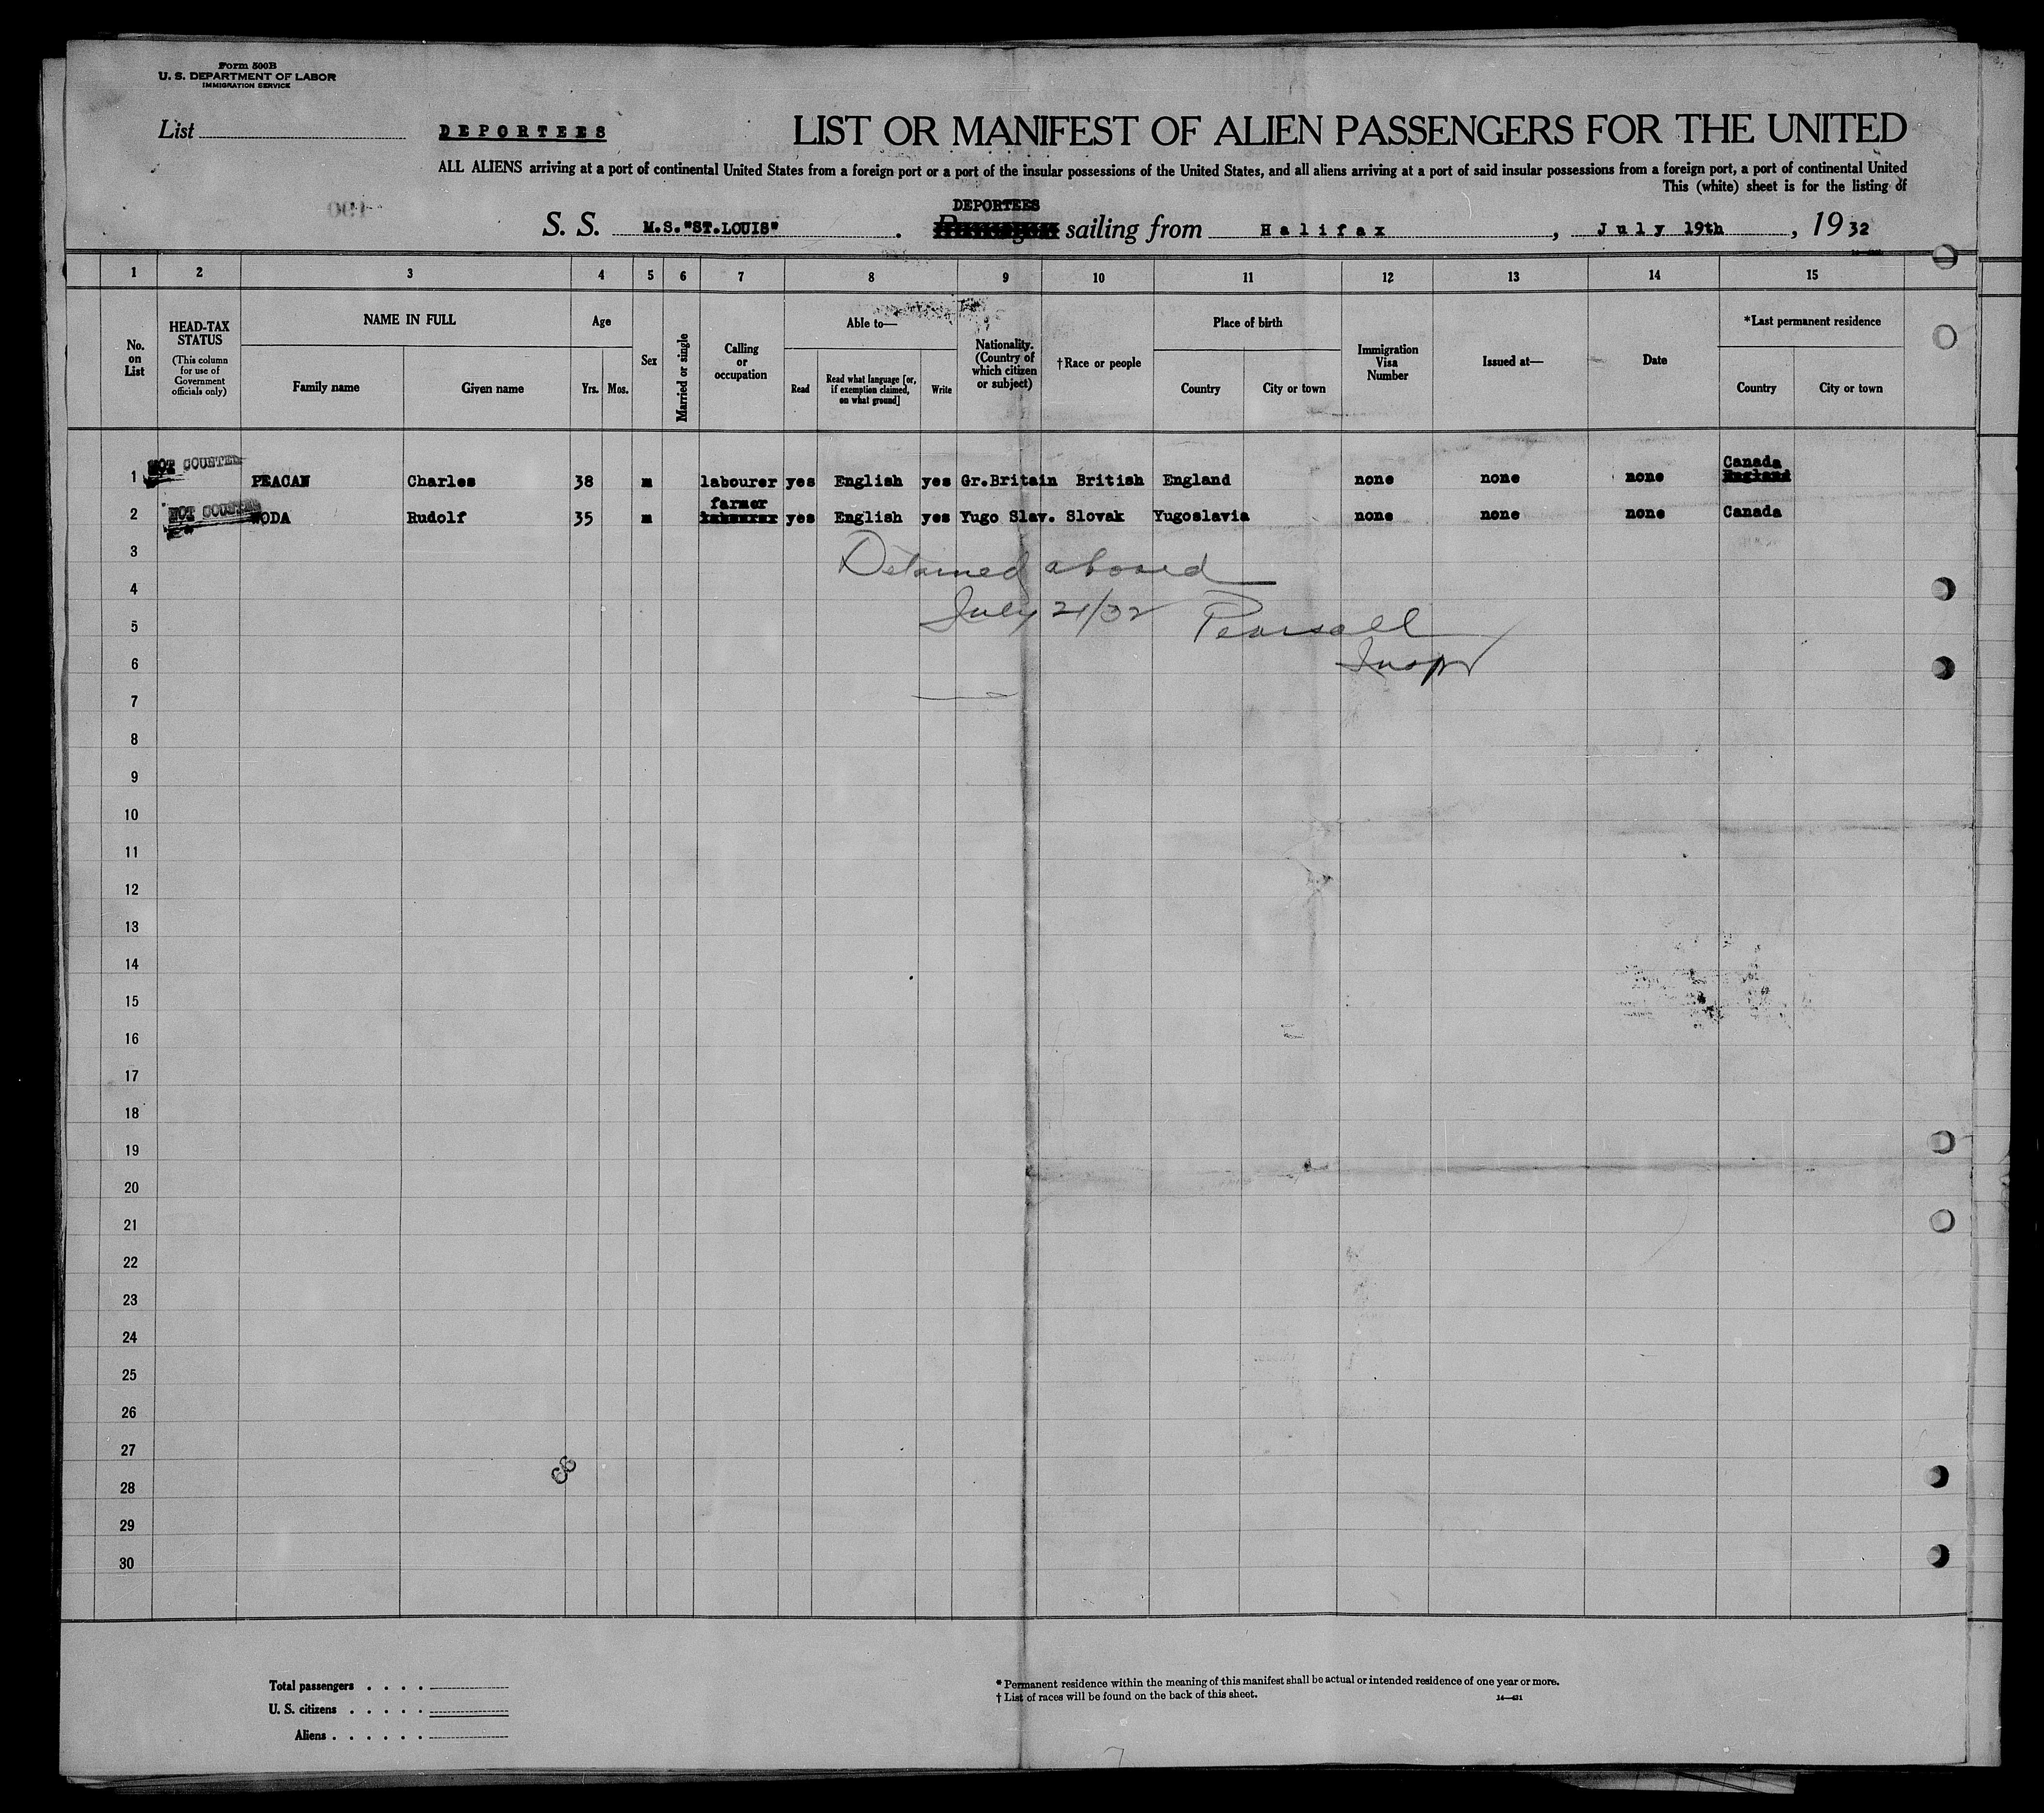 Form 500B
U. S. DEPARTMENT OF LABOR
IMMIGRATION SERVICE
List
DEPORTEES
LIST OR MANIFEST OF ALIEN PASSENGERS FOR THE UNITED
ALL ALIENS arriving at a port of continental United States from a foreign port or a port of the insular possessions of the United States, and all aliens arriving at a port of said insular possessions from a foreign port, a port of continental United
This (white) sheet is for the listing of
DEPORTEES
S. S. M.S."ST.LOUIS" . sailing from Halifax, July 19th, 19 32
1 2 3 4 5 6 7 8 9 10 11 12 13 14 15
No. on List
HEAD-TAX STATUS
(This column for use of Government officials only)
NAME IN FULL
Family name Given name
Age
Yrs. Mos.
Sex
Married or single
Calling or occupation
Able to—
Read
Read what language [or, if exemption claimed, on what ground]
Write
Nationality. (Country of which citizen or subject)
†Race or people
Place of birth
Country City or town
Immigration Visa Number
Issued at—
Date
*Last permanent residence
Country City or town
NOT COUNTED
Canada
1 PEACAN Charles 38 m labourer yes English yes Gr.Britain British England none none none England
NOT COUNTED
farmer
2 WODA Rudolf 35 m labourer yes English yes Yugo Slav. Slovak Yugoslavia none none none Canada
3
Detained aboard
4
July 21/32 Pearsall
5
6
Inspr
7
8
9
10
11
12
13
14
15
16
17
18
19
20
21
22
23
24
25
26
27
66
28
29
30
Total passengers . . . .
U. S. citizens . . . . .
Aliens . . . . . .
* Permanent residence within the meaning of this manifest shall be actual or intended residence of one year or more.
† List of races will be found on the back of this sheet.